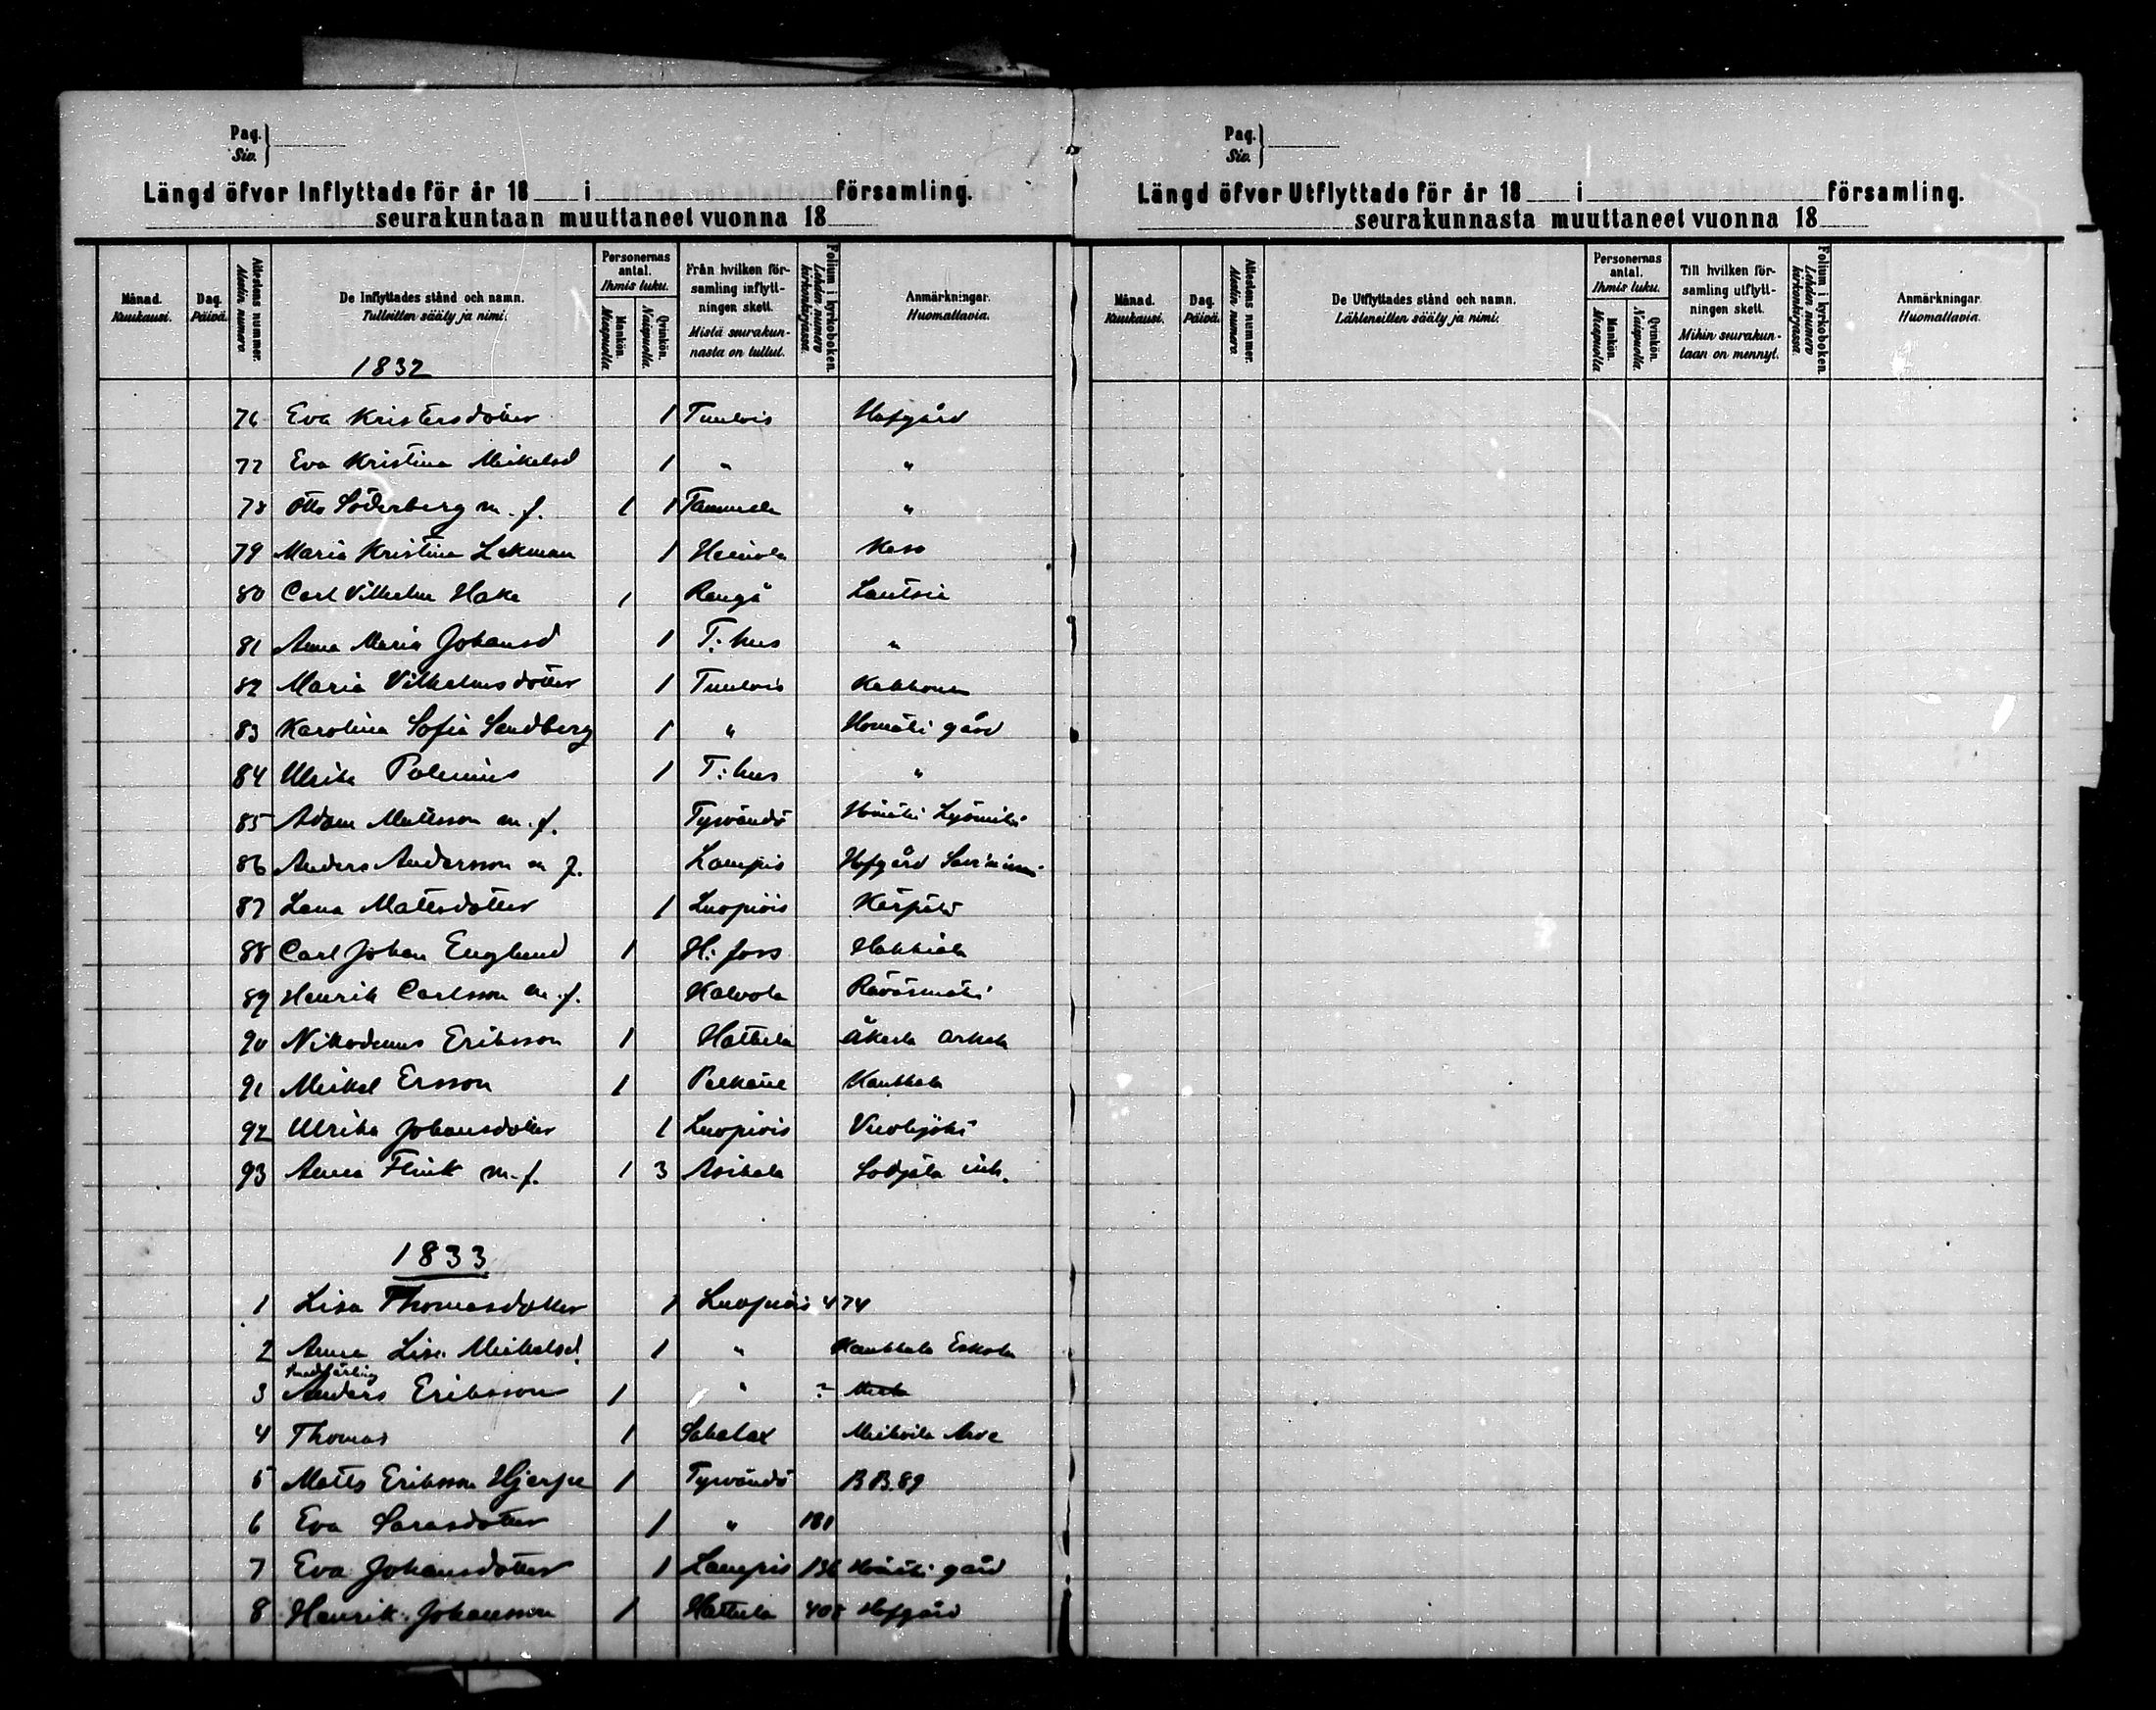 Pag.
Siv.
Längd öfver Inflyttade för år 18 i församling.
seurakuntaan muuttaneet vuonna 18
Månad. Kuukausi.
Dag. Päivä.
Attestens nummer. Atestin numero.
De Inflyttades stånd och namn. Tulleitten sääty ja nimi.
Personernas antal. Ihmis luku.
Mankön. Miespuolia
Qvinkön. Naispuolia.
Från hvilken församling inflyttningen skett. Mistä seurakunnasta on tullut.
Folium i kyrkoboken. Lehden numero kirkonkirjassa.
Anmärkningar. Huomattavia.
1832
76 Eva Kristersdotter 1 Tuulois Hofgård
77 Eva Kristina Mickelsd 1 " "
78 Otto Söderberg m. f. 1 1 Tammela "
79 Maria Kristina Lekman 1 Heinola Kaso
80 Carl Vilhelm Hake 1 Rengå Lautsia
81 Anna Maria Johansd 1 T: hus "
82 Maria Vilhelmsdotter 1 Tuulois
83 Karolina Sofia Sandberg 1 " gård
84 Ulrika Polenius 1 T: hus "
85 Adam Mattsson m. f. Tyrvändö
86 Anders Andersson m f. Lampis Hofgård
87 Lena Mattsdotter 1 Luopiois Kärpälä
88 Carl Johan Englund 1 H: fors Hakkiala
89 Henrik Carlsson m. f. Kalvola
90 Nikodemus Eriksson 1 Hattula Åkerla Arkela
91 Mickel Ersson 1 Pelkäne Kaukkala
92 Ulrika Johansdotter 1 Luopiois Vuolijoki
93 Anna Flink m. f. 1 3 Asikala inh.
1833
1 Lisa Thomasdotter 1 Luopiois 474
2 Anna Lisa Mickelsd. 1 " Kaukkala Eskola
3 Anders Eriksson 1 " ?
4 Thomas 1 Sahalax
5 Matts Eriksson Hjerpe 1 Tyrvändö B B. 89
6 Eva Sarasdotter 1 " 181
7 Eva Johansdotter 1 Lampis 136 gård
8 Henrik Johansson 1 Hattula 408 Hofgård
Pag.
Siv.
Längd öfver Utflyttade för år 18 i församling.
seurakunnasta muuttaneet vuonna 18
Månad. Kuukausi.
Dag. Päivä.
Attestens nummer. Atestin numero.
De Utflyttades stånd och namn. Lähteneitten sääty ja nimi.
Personernas antal. Ihmis luku.
Mankön. Miespuolia
Qvinkön. Naispuolia.
Till hvilken församling utflyttningen skett. Mihin seurakuntaan on mennyt.
Folium i kyrkoboken. Lehden numero kirkonkirjassa.
Anmärkningar. Huomattavia.